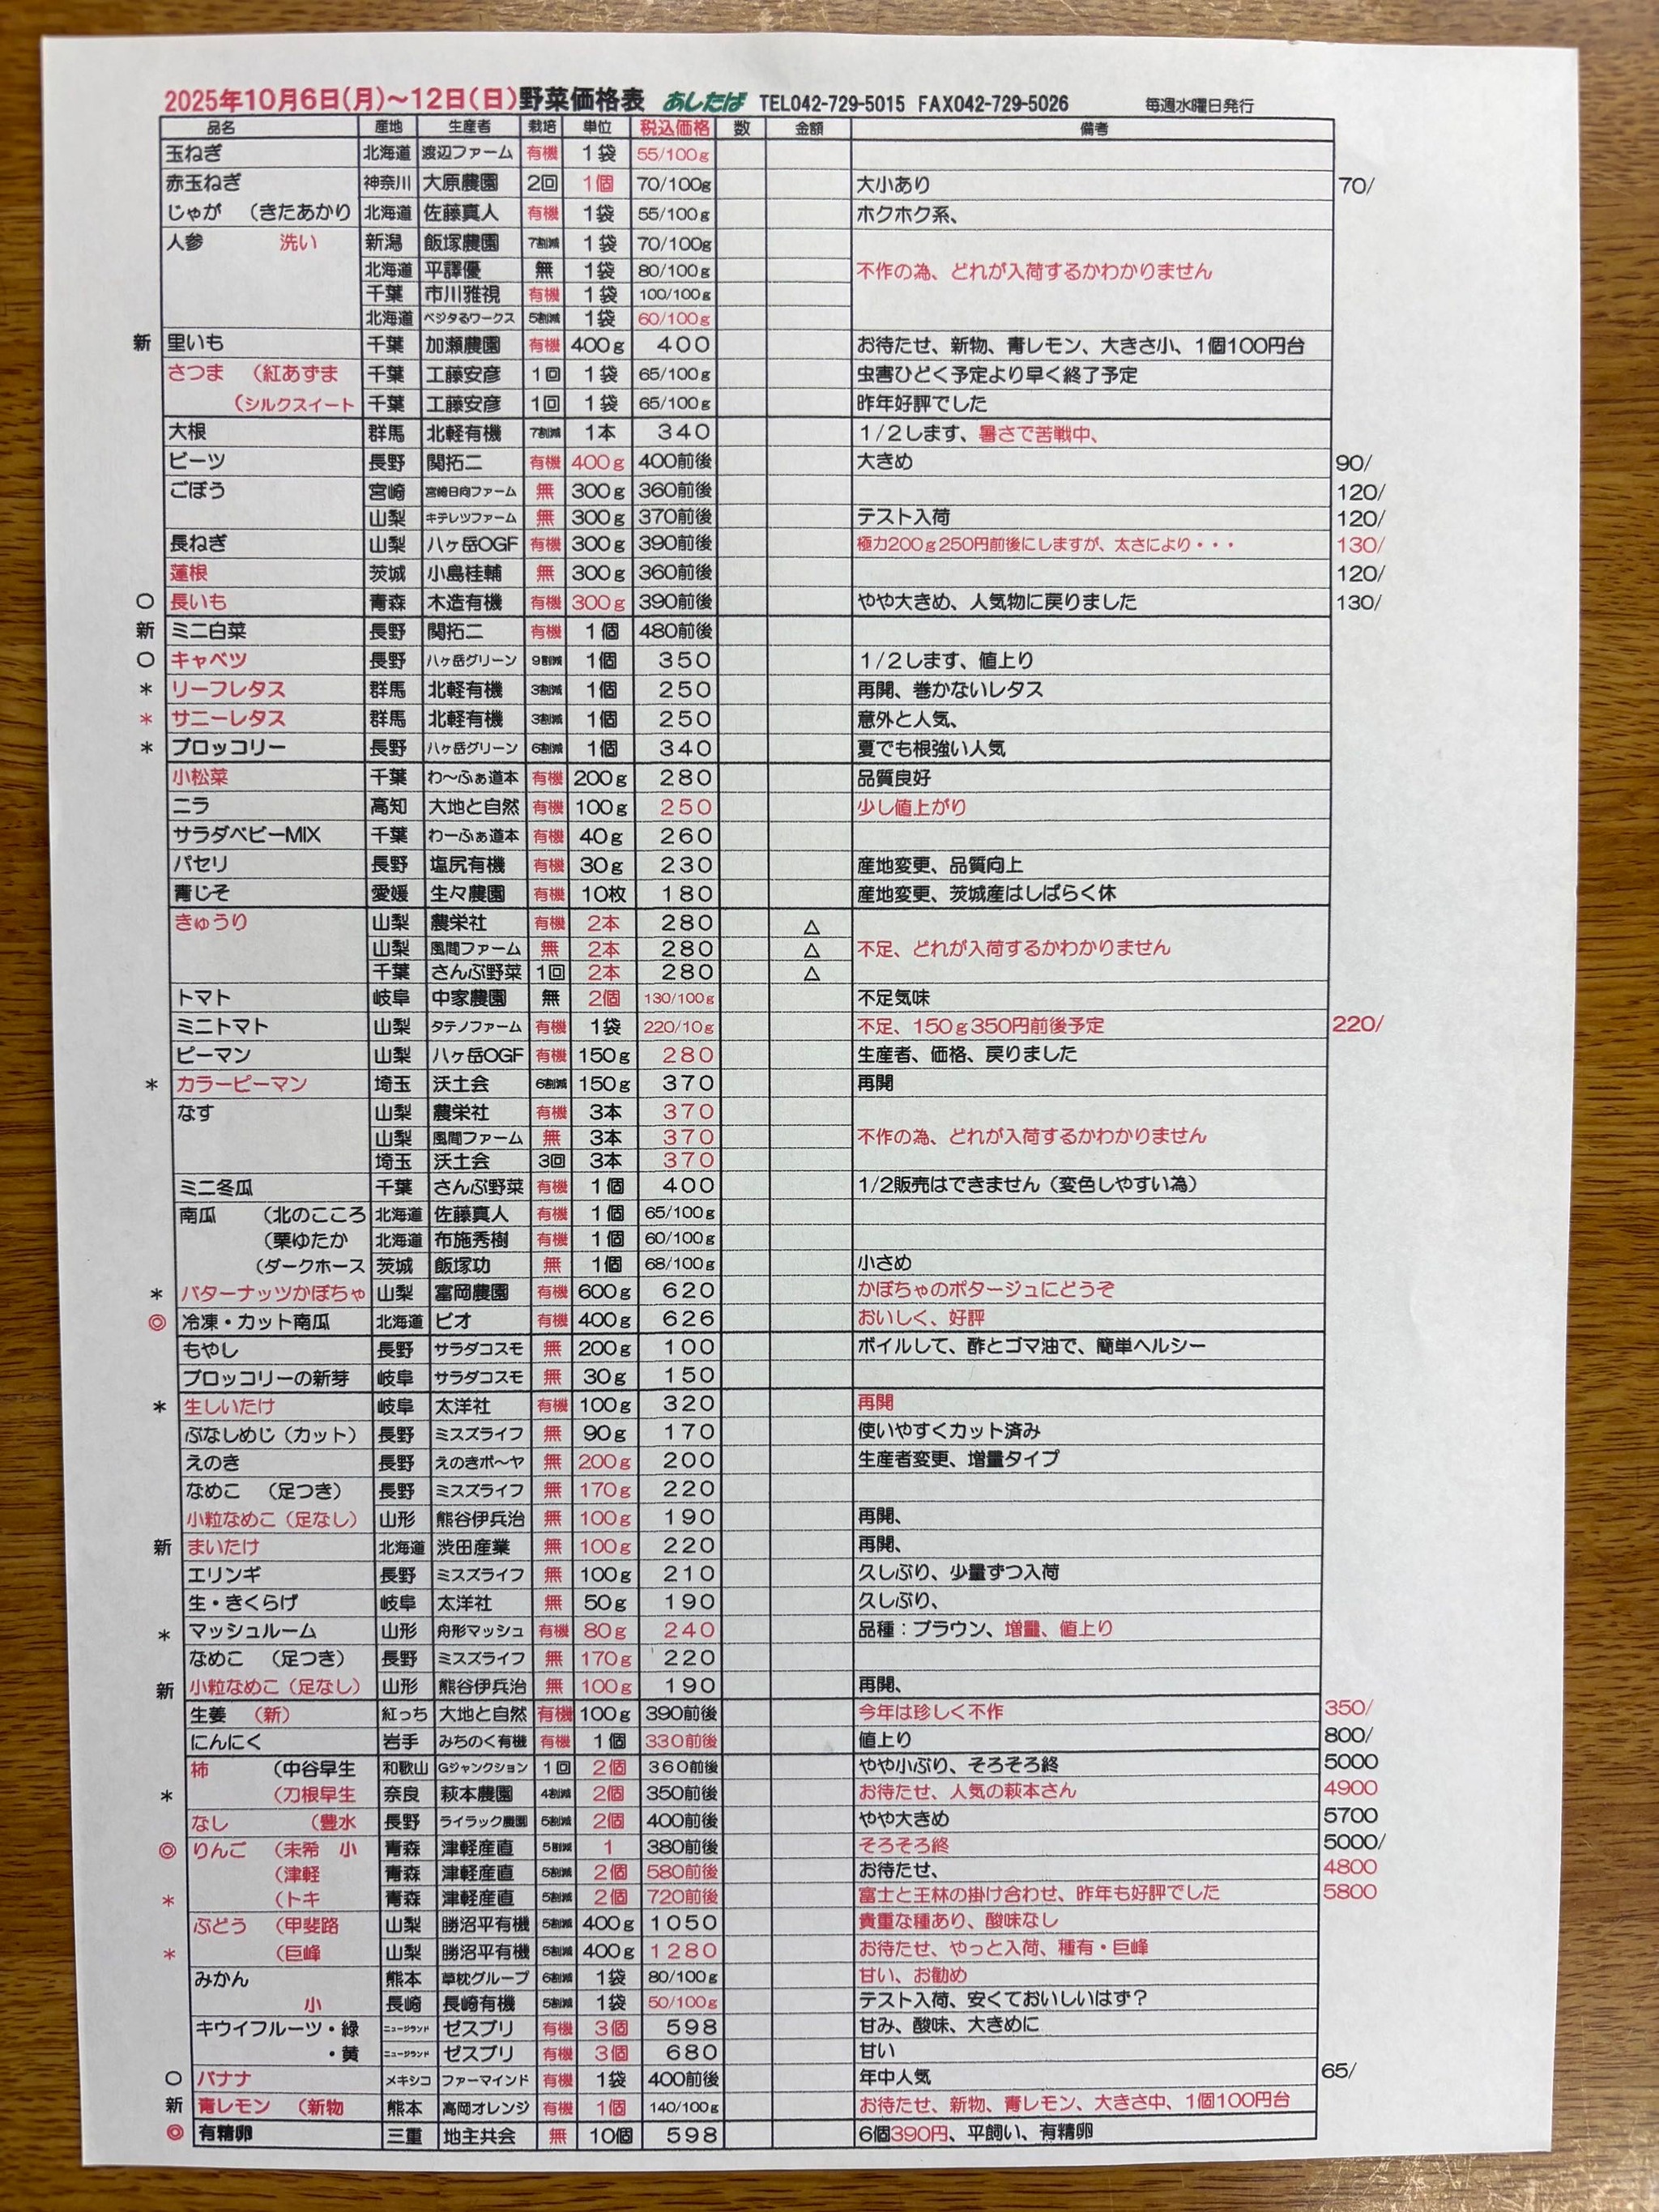 2025年10月6日(月)～12日(日)野菜価格表 あしたば TEL042-729-5015 FAX042-729-5026 毎週水曜日発行
品名 産地 生産者 栽培 単位 税込価格 数 金額 備考
玉ねぎ 北海道 渡辺ファーム 有機 1袋 55/100g
赤玉ねぎ 神奈川 大原農園 2回 1個 70/100g 大小あり 70/
じゃが (きたあかり 北海道 佐藤真人 有機 1袋 55/100g ホクホク系、
人参 洗い 新潟 飯塚農園 7割減 1袋 70/100g
北海道 平譯優 無 1袋 80/100g 不作の為、どれが入荷するかわかりません
千葉 市川雅視 有機 1袋 100/100g
北海道 ベジタるワークス 5割減 1袋 60/100g
新 里いも 千葉 加瀬農園 有機 400g 400 お待たせ、新物、青レモン、大きさ小、1個100円台
さつま (紅あずま 千葉 工藤安彦 1回 1袋 65/100g 虫害ひどく予定より早く終了予定
(シルクスイート 千葉 工藤安彦 1回 1袋 65/100g 昨年好評でした
大根 群馬 北軽有機 7割減 1本 340 1/2します、暑さで苦戦中、
ビーツ 長野 関拓二 有機 400g 400前後 大きめ 90/
ごぼう 宮崎 宮崎日向ファーム 無 300g 360前後 120/
山梨 キテレツファーム 無 300g 370前後 テスト入荷 120/
長ねぎ 山梨 八ヶ岳OGF 有機 300g 390前後 極力200g250円前後にしますが、太さにより・・・ 130/
蓮根 茨城 小島桂輔 無 300g 360前後 120/
○ 長いも 青森 木造有機 有機 300g 390前後 やや大きめ、人気物に戻りました 130/
新 ミニ白菜 長野 関拓二 有機 1個 480前後
○ キャベツ 長野 八ヶ岳グリーン 9割減 1個 350 1/2します、値上り
* リーフレタス 群馬 北軽有機 3割減 1個 250 再開、巻かないレタス
* サニーレタス 群馬 北軽有機 3割減 1個 250 意外と人気、
* ブロッコリー 長野 八ヶ岳グリーン 6割減 1個 340 夏でも根強い人気
小松菜 千葉 わ～ふぁ道本 有機 200g 280 品質良好
ニラ 高知 大地と自然 有機 100g 250 少し値上がり
サラダベビーMIX 千葉 わーふぁ道本 有機 40g 260
パセリ 長野 塩尻有機 有機 30g 230 産地変更、品質向上
青じそ 愛媛 生々農園 有機 10枚 180 産地変更、茨城産はしばらく休
きゅうり 山梨 農栄社 有機 2本 280 △
山梨 風間ファーム 無 2本 280 △ 不足、どれが入荷するかわかりません
千葉 さんぶ野菜 1回 2本 280 △
トマト 岐阜 中家農園 無 2個 130/100g 不足気味
ミニトマト 山梨 タテノファーム 有機 1袋 220/10g 不足、150g350円前後予定 220/
ピーマン 山梨 八ヶ岳OGF 有機 150g 280 生産者、価格、戻りました
* カラーピーマン 埼玉 沃土会 6割減 150g 370 再開
なす 山梨 農栄社 有機 3本 370
山梨 風間ファーム 無 3本 370 不作の為、どれが入荷するかわかりません
埼玉 沃土会 3回 3本 370
ミニ冬瓜 千葉 さんぶ野菜 有機 1個 400 1/2販売はできません（変色しやすい為）
南瓜 (北のこころ 北海道 佐藤真人 有機 1個 65/100g
(栗ゆたか 北海道 布施秀樹 有機 1個 60/100g
(ダークホース 茨城 飯塚功 無 1個 68/100g 小さめ
* バターナッツかぼちゃ 山梨 富岡農園 有機 600g 620 かぼちゃのポタージュにどうぞ
◎ 冷凍・カット南瓜 北海道 ビオ 有機 400g 626 おいしく、好評
もやし 長野 サラダコスモ 無 200g 100 ボイルして、酢とゴマ油で、簡単ヘルシー
ブロッコリーの新芽 岐阜 サラダコスモ 無 30g 150
* 生しいたけ 岐阜 太洋社 有機 100g 320 再開
ぶなしめじ（カット） 長野 ミスズライフ 無 90g 170 使いやすくカット済み
えのき 長野 えのきボ～ヤ 無 200g 200 生産者変更、増量タイプ
なめこ （足つき） 長野 ミスズライフ 無 170g 220
小粒なめこ（足なし） 山形 熊谷伊兵治 無 100g 190 再開、
新 まいたけ 北海道 渋田産業 無 100g 220 再開、
エリンギ 長野 ミスズライフ 無 100g 210 久しぶり、少量ずつ入荷
生・きくらげ 岐阜 太洋社 無 50g 190 久しぶり、
* マッシュルーム 山形 舟形マッシュ 有機 80g 240 品種：ブラウン、増量、値上り
なめこ （足つき） 長野 ミスズライフ 無 170g 220
新 小粒なめこ（足なし） 山形 熊谷伊兵治 無 100g 190 再開、
生姜 （新） 紅っち 大地と自然 有機 100g 390前後 今年は珍しく不作 350/
にんにく 岩手 みちのく有機 有機 1個 330前後 値上り 800/
柿 (中谷早生 和歌山 Gジャンクション 1回 2個 360前後 やや小ぶり、そろそろ終 5000
* (刀根早生 奈良 萩本農園 4割減 2個 350前後 お待たせ、人気の萩本さん 4900
なし (豊水 長野 ライラック農園 5割減 2個 400前後 やや大きめ 5700
◎ りんご (未希 小 青森 津軽産直 5割減 1 380前後 そろそろ終 5000/
(津軽 青森 津軽産直 5割減 2個 580前後 お待たせ、 4800
* (トキ 青森 津軽産直 5割減 2個 720前後 富士と王林の掛け合わせ、昨年も好評でした 5800
ぶどう (甲斐路 山梨 勝沼平有機 5割減 400g 1050 貴重な種あり、酸味なし
* (巨峰 山梨 勝沼平有機 5割減 400g 1280 お待たせ、やっと入荷、種有・巨峰
みかん 熊本 草枕グループ 6割減 1袋 80/100g 甘い、お勧め
小 長崎 長崎有機 5割減 1袋 50/100g テスト入荷、安くておいしいはず？
キウイフルーツ・緑 ニュージランド ゼスプリ 有機 3個 598 甘み、酸味、大きめに
・黄 ニュージランド ゼスプリ 有機 3個 680 甘い
○ バナナ メキシコ ファーマインド 有機 1袋 400前後 年中人気 65/
新 青レモン (新物 熊本 高岡オレンジ 有機 1個 140/100g お待たせ、新物、青レモン、大きさ中、1個100円台
◎ 有精卵 三重 地主共会 無 10個 598 6個390円、平飼い、有精卵